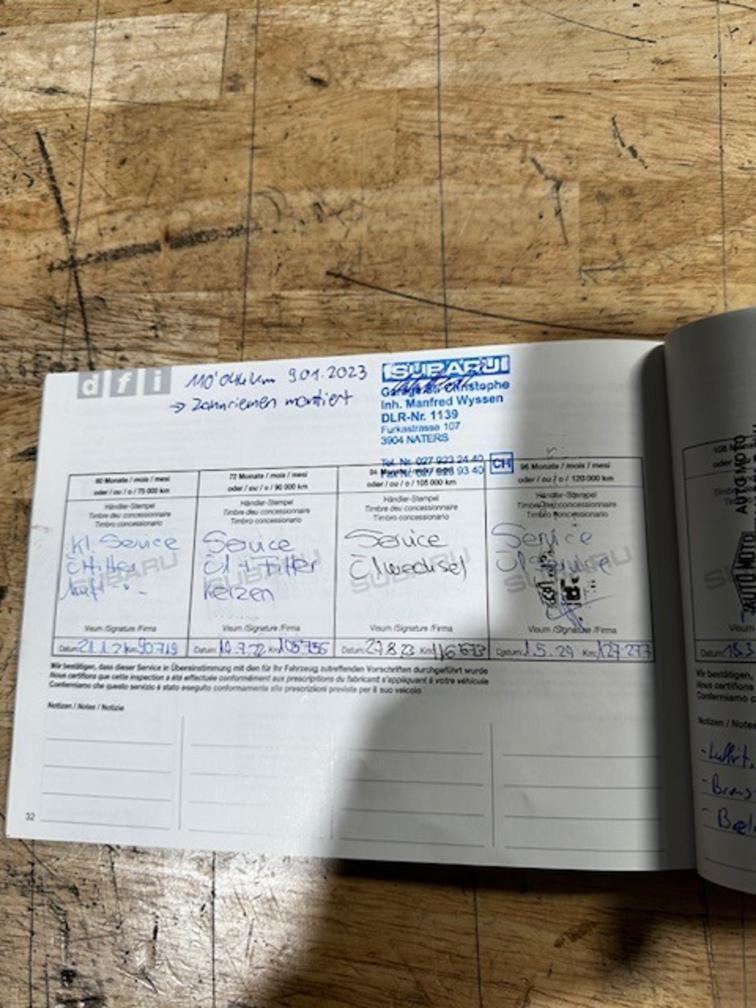 d f i
9.01.2023
→ Zahnriemen montiert
SUBARU
Christophe
Inh. Manfred Wyssen
DLR-Nr. 1139
Furkastrasse 107
3904 NATERS
Tel. Nr. 027 923 24 40
CH
60 Monate / mois / mesi
oder / ou / o / 75 000 km
Händler-Stempel
Timbre du concessionnaire
Timbro concessionario
Kl. Service
Ölfilter
SUBARU
Visum /Signature /Firma
Datum 21.1.21 Km 90719
72 Monate / mois / mesi
oder / ou / o / 90 000 km
Händler-Stempel
Timbre deu concessionnaire
Timbro concessionario
Service
Öl + Filter
SUBARU
Kerzen
Visum /Signature /Firma
Km 105756
84 Monate / mois / mesi
oder / ou / o / 105 000 km
Händler-Stempel
Timbre deu concessionnaire
Timbro concessionario
Service
Ölwechsel
SUBARU
Visum /Signature /Firma
Datum 29.8.23 Km 116573
96 Monate / mois / mesi
oder / ou / o / 120 000 km
Händler-Stempel
Timbre deu concessionnaire
Timbro concessionario
Service
Ölservice
SUBARU
Visum /Signature /Firma
Datum Km 127277
Wir bestätigen, dass dieser Service in Übereinstimmung mit den für Ihr Fahrzeug zutreffenden Vorschriften durchgeführt wurde
Nous certifions que cette inspection a été effectuée conformément aux prescriptions du fabricant s'appliquant à votre véhicule
Confermiamo che questo servizio è stato eseguito conformamente alle prescrizioni previste per il suo veicolo
Notizen / Notes / Notizie
32
108
oder
AUTO MOTO
Datum
Wir bestätigen,
Nous certifions
Confermiamo c
Notizen / Notes